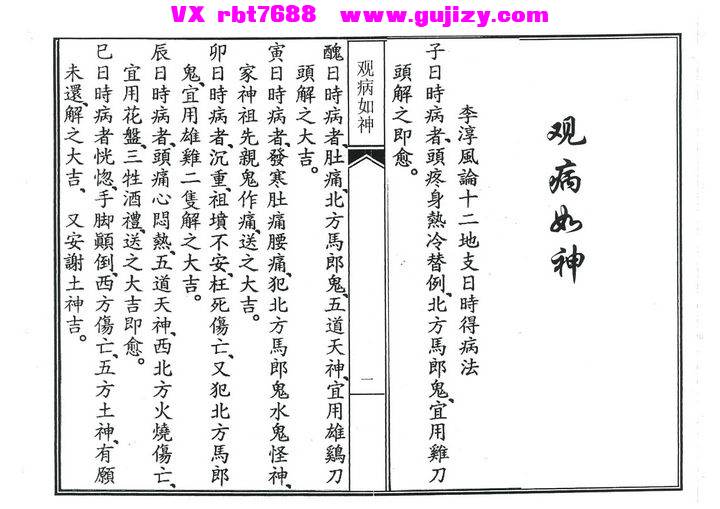 VX rbt7688 www.gujizy.com
观病如神
李淳風論十二地支日時得病法
子日時病者、頭疼身熱冷替例、北方馬郎鬼、宜用雞刀
頭解之即愈。
观病如神
一
醜日時病者、肚痛、北方馬郎鬼、五道天神、宜用雄鷄刀
頭解之大吉。
寅日時病者、發寒肚痛腰痛、犯北方馬郎鬼水鬼怪神、
家神祖先親鬼作痛、送之大吉。
卯日時病者、沉重、祖墳不安、枉死傷亡、又犯北方馬郎
鬼、宜用雄雞二隻解之大吉。
辰日時病者、頭痛心悶熱、五道天神、西北方火燒傷亡、
宜用花盤、三牲酒禮、送之大吉即愈。
巳日時病者恍惚、手脚顛倒、西方傷亡、五方土神、有願
未還、解之大吉、又安謝土神吉。